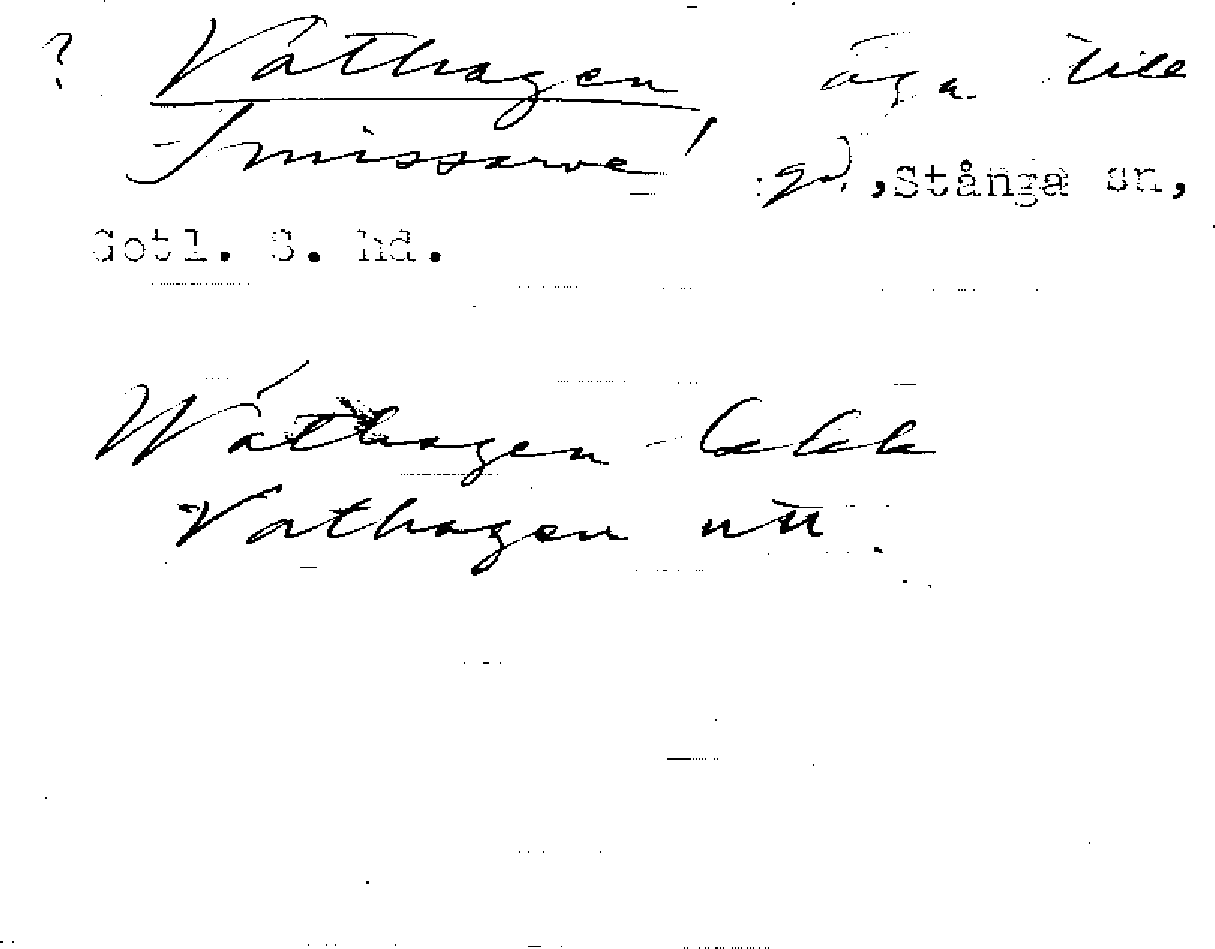 ? Vathagen äga till
Smissarve gd, Stånga sn,
Gotl. S. hd.
Wáthagen - lskk
Vathagen utt.